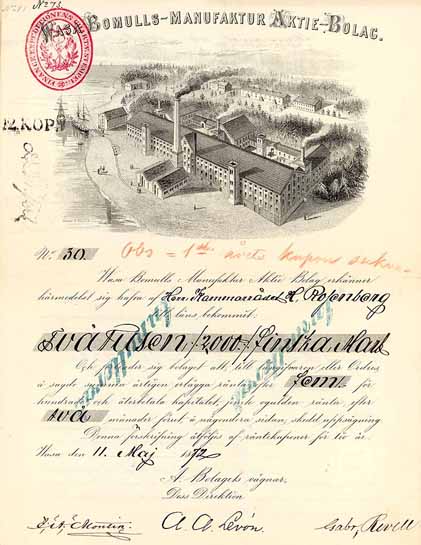 No 73.
Wasa Bomulls-Manufaktur Aktie-Bolag.
12 KOP.
No 30.
Obs = 1 st.
Wasa Bomulls Manufaktur Aktie Bolag erkänner
härmedelst sig hafva af Herr Kammarrådet H. Rosenberg
till låns bekommit
Två Tusen /2000/ Finska Mark
Och förbinder sig bolaget att, till innehafvaren eller Ordres,
å sagde summa årligen erlägga ränta efter Fem för
hundrade och återbetala kapitalet, jemte ogulden ränta, efter
två månader förut, å någondera sidan, skedd uppsägning
Denna förskrifning åtföljes af räntekuponer för tio år.
Wasa den 11 Maj 1872
A. Bolagets vägnar.
Dess Direktion
A. A. Levón
Gabr. Revell